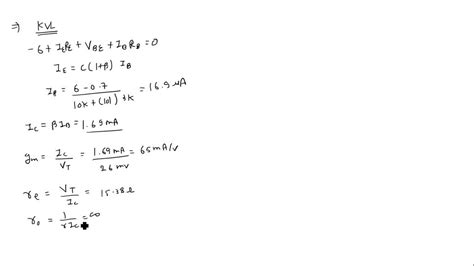 ⇒ KVL
-6 + I_E R_E + V_BE + I_B R_B = 0
I_E = C(1+β) I_B
I_B = (6-0.7)/(10k+(101)*3k) = 16.9 μA
I_C = β I_B = 1.69mA
g_m = I_C/V_T = 1.69mA/26mV = 65mA/V
r_e = V_T/I_C = 15.38Ω
r_o = 1/(γI_C) = ∞